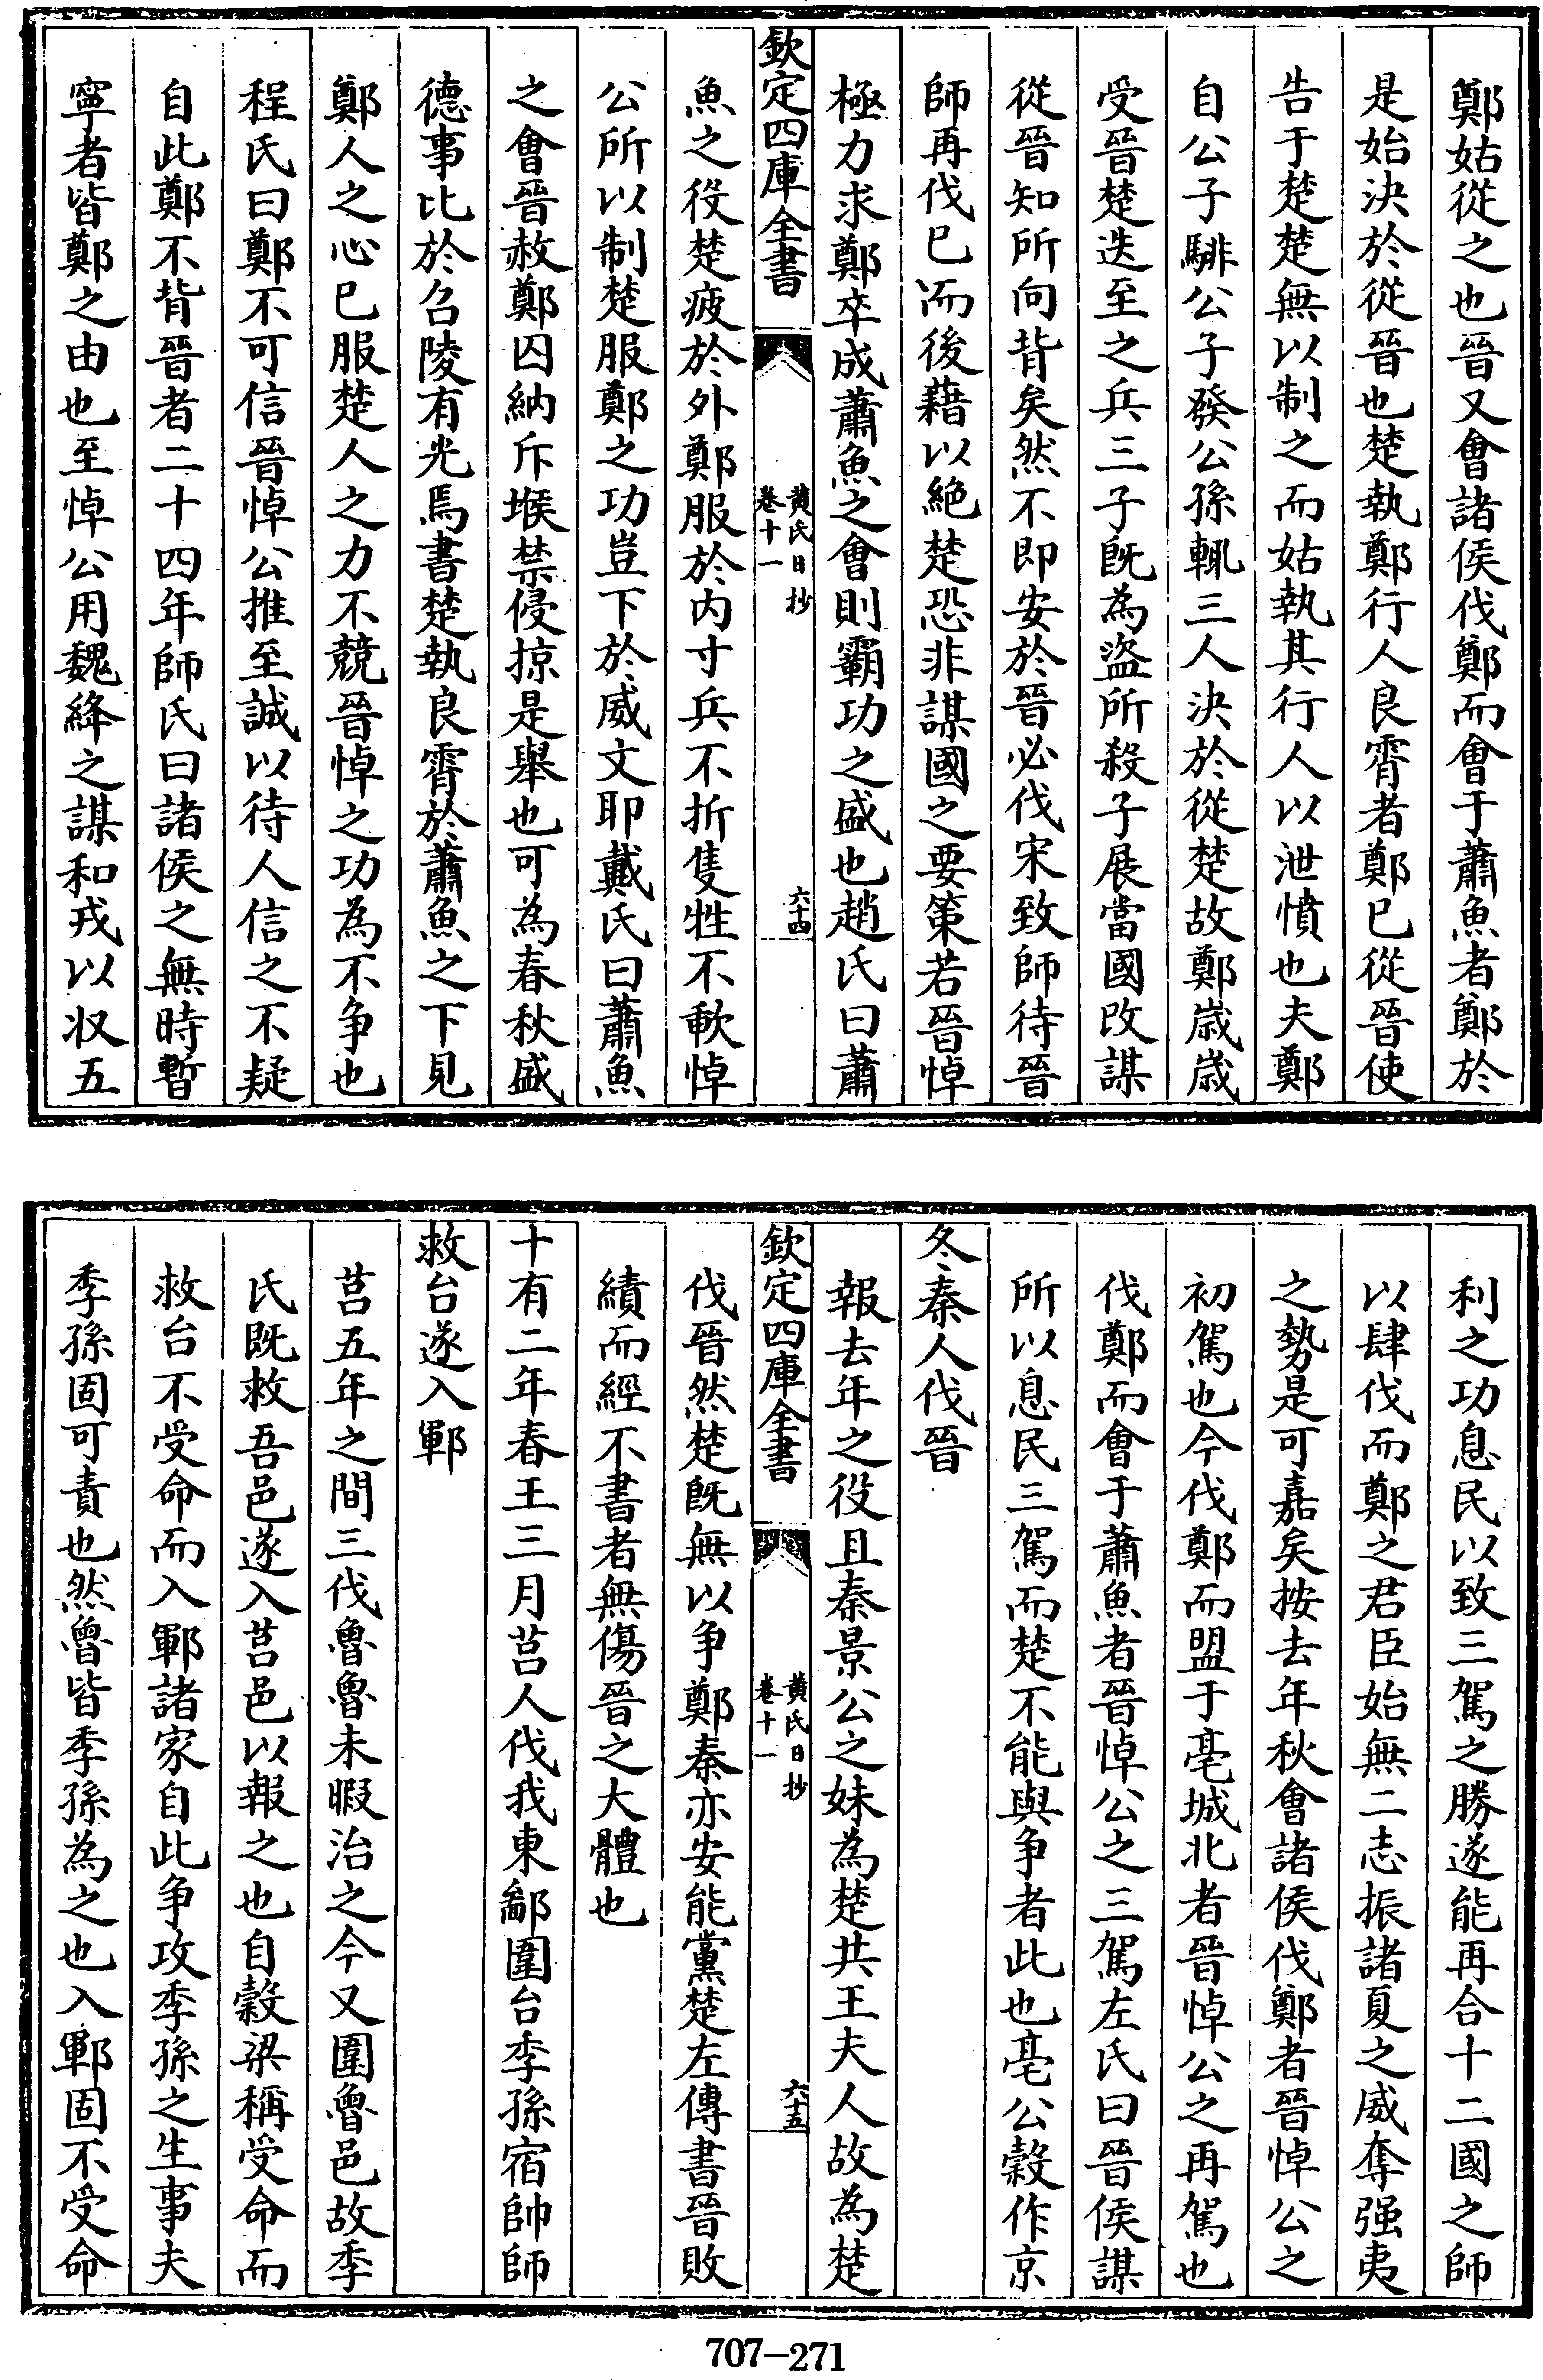 鄭姑從之也晉又會諸侯伐鄭而會于蕭魚者鄭於
是始決於從晉也楚執鄭行人良霄者鄭已從晉使
告于楚楚無以制之而姑執其行人以泄憤也夫鄭
自公子騑公子發公孫輒三人決於從楚故鄭歳歳
受晉楚迭至之兵三子旣為盜所殺子展當國改謀
從晉知所向背矣然不即安於晉必伐宋致師待晉
師再伐已而後藉以絶楚恐非謀國之要策若晉悼
極力求鄭卒成蕭魚之會則霸功之盛也趙氏曰蕭
欽定四庫全書
黃氏日抄
卷十一
六十四
魚之役楚疲於外鄭服於内寸兵不折隻牲不軟悼
公所以制楚服鄭之功豈下於威文耶戴氏曰蕭魚
之會晉赦鄭囚納斥堠禁侵掠是舉也可為春秋盛
德事比於召陵有光焉書楚執良霄於蕭魚之下見
鄭人之心已服楚人之力不競晉悼之功為不争也
程氏曰鄭不可信晉悼公推至誠以待人信之不疑
自此鄭不背晉者二十四年師氏曰諸侯之無時暫
寧者皆鄭之由也至悼公用魏絳之謀和戎以収五
利之功息民以致三駕之勝遂能再合十二國之師
以肆伐而鄭之君臣始無二志振諸夏之威奪强夷
之勢是可嘉矣按去年秋會諸侯伐鄭者晉悼公之
初駕也今伐鄭而盟于亳城北者晉悼公之再駕也
伐鄭而會于蕭魚者晉悼公之三駕左氏曰晉侯謀
所以息民三駕而楚不能與争者此也亳公穀作京
冬秦人伐晉
報去年之役且秦景公之妹為楚共王夫人故為楚
欽定四庫全書
黃氏日抄
卷十一
六十五
伐晉然楚旣無以争鄭秦亦安能黨楚左傳書晉敗
績而經不書者無傷晉之大體也
十有二年春王三月莒人伐我東鄙圍台季孫宿帥師
救台遂入鄆
莒五年之間三伐魯魯未暇治之今又圍魯邑故季
氏既救吾邑遂入莒邑以報之也自穀梁稱受命而
救台不受命而入鄆諸家自此争攻季孫之生事夫
季孫固可責也然魯皆季孫為之也入鄆固不受命
707-271